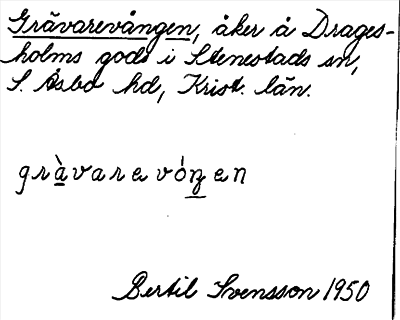 Grävarevången, åker å Drages-
holms gods i Stenestads sn,
S. Åsbo hd, Krist. län.
gràvarevóŋen
Bertil Svensson 1950